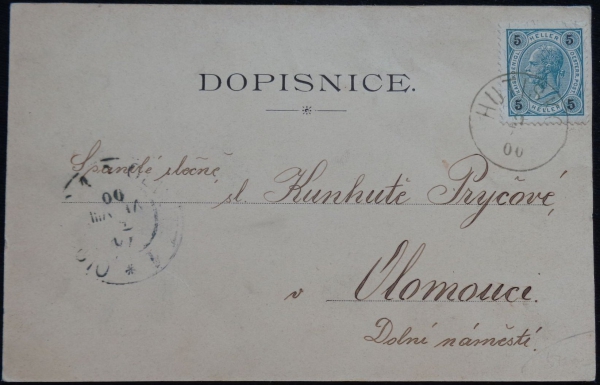 DOPISNICE.
5 HELLER 5
5 HELLER 5
HU
00
Spanilé slečně,
sl. Kunhutě Pryčové,
v Olomouci.
Dolní náměstí.
00